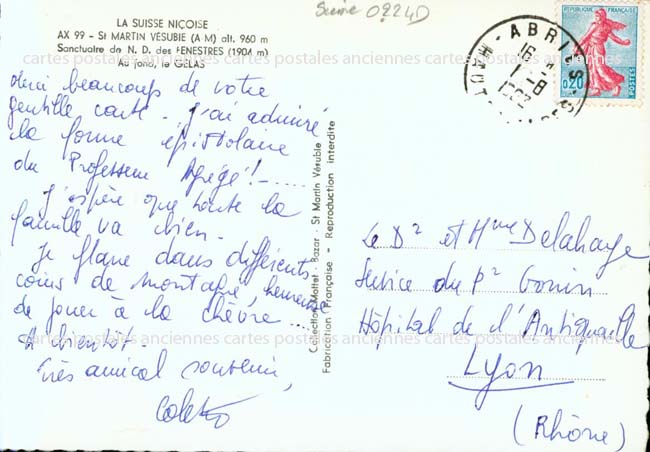 LA SUISSE NIÇOISE
AX 99 - St MARTIN VÉSUBIE (A M) alt. 960 m
Sanctuaire de N. D. des FENESTRES (1904 m)
Au fond, le GÉLAS
Merci beaucoup de votre
gentille carte. J'ai admiré
la forme épistolaire
du Professeur Agrégé! - .....
J'espère que toute la
famille va bien.
Je flane dans différents
coins de montagne, heureuse
de jouer à la chèvre ....
A bientôt.
Très amical souvenir,
Collection Mattet - Bazar - St Martin Vésubie
Fabrication Française - Reproduction interdite
0224D
HAUT-ABRIES
16 H
1-8
RÉPUBLIQUE FRANÇAISE
0,20
POSTES
Le Dr et Mme Delahaye
Service du Pr Gonin
Hôpital de l'Antiquaille
Lyon
(Rhône)
cartes postales anciennes cartes postales anciennes cartes postales anciennes